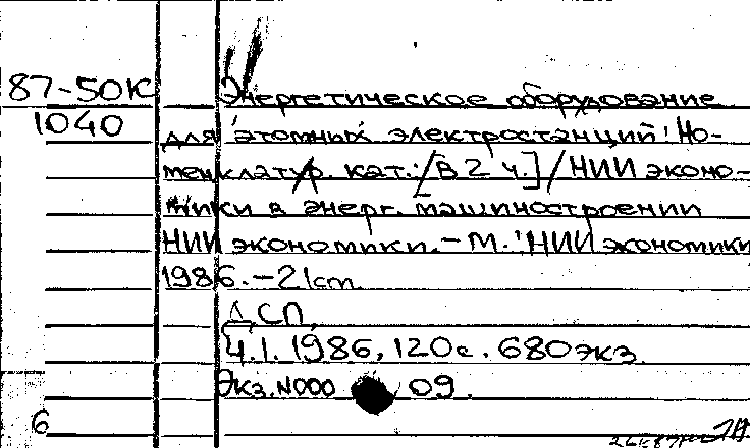 87-50К Энергетическое оборудование
1040 для атомных электростанций: Но-
менклатур. кат.: [В 2 ч.] / НИИ эконо-
мики в энерг. машиностроении
НИИ экономики. – М. : НИИ экономики
1986. – 21 cm.
ДСП.
Ч.1. 1986, 120 с. 680 экз.
Экз. N000 09.
6